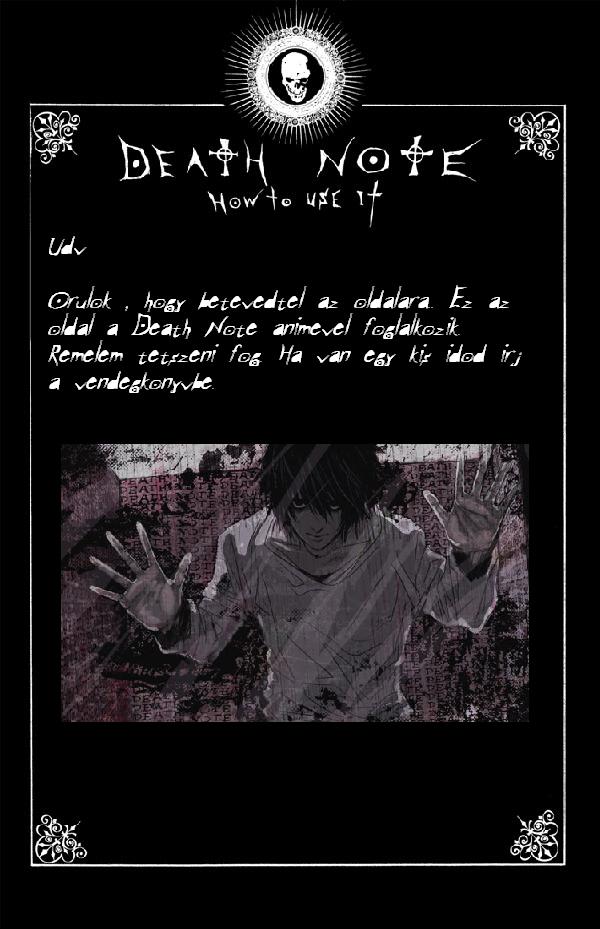 DEATH NOTE
HOW TO USE IT
Udv
Orulok , hogy betevedtel az oldalara. Ez az
oldal a Death Note animevel foglalkozik.
Remelem tetszeni fog. Ha van egy kis idod irj
a vendegkonyvbe.